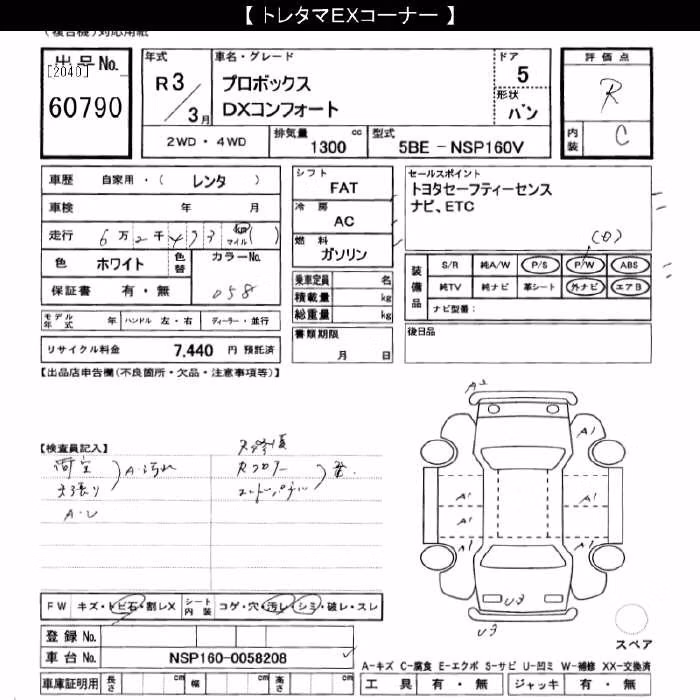 【 トレタマEXコーナー 】
(複合機)対応用紙
出品No.
[2040]
60790
年式
R3/3月
車名・グレード
プロボックス
DXコンフォート
ドア
5
形状
バン
評価点
R
内装
C
2WD・4WD
排気量
1300 cc
型式
5BE - NSP160V
車歴 自家用・( レンタ )
車検 年 月
走行 6万2千493 km マイル ( )
色 ホワイト 色替
カラーNo.
058
保証書 有・無
モデル年式 年 ハンドル 左・右 ディーラー・並行
リサイクル料金 7,440 円 預託済
シフト
FAT
冷房
AC
燃料
ガソリン
乗車定員 名
積載量 kg
総重量 kg
書類期限
月 日
セールスポイント
トヨタセーフティーセンス
ナビ、ETC
装備品
S/R 純A/W P/S P/W ABS
純TV 純ナビ 革シート 外ナビ エアB
ナビ型番:
後日品
【出品店申告欄(不良箇所・欠品・注意事項等)】
【検査員記入】
荷室
天張り
A・汚れ
A・U
R修復
Rフロアー
エンドパネル
A2
A1
A1
A1
A1
A1
A1
A1
U3
U3
スペア
FW キズ・トビ石・割レX シート内装 コゲ・穴・汚レ・シミ・破レ・スレ
登録 No.
車台 No. NSP160-0058208
車庫証明用 長さ cm 幅 cm 高さ cm
A-キズ C-腐食 E-エクボ S-サビ U-凹ミ W-補修 XX-交換済
工具 有・無 ジャッキ 有・無